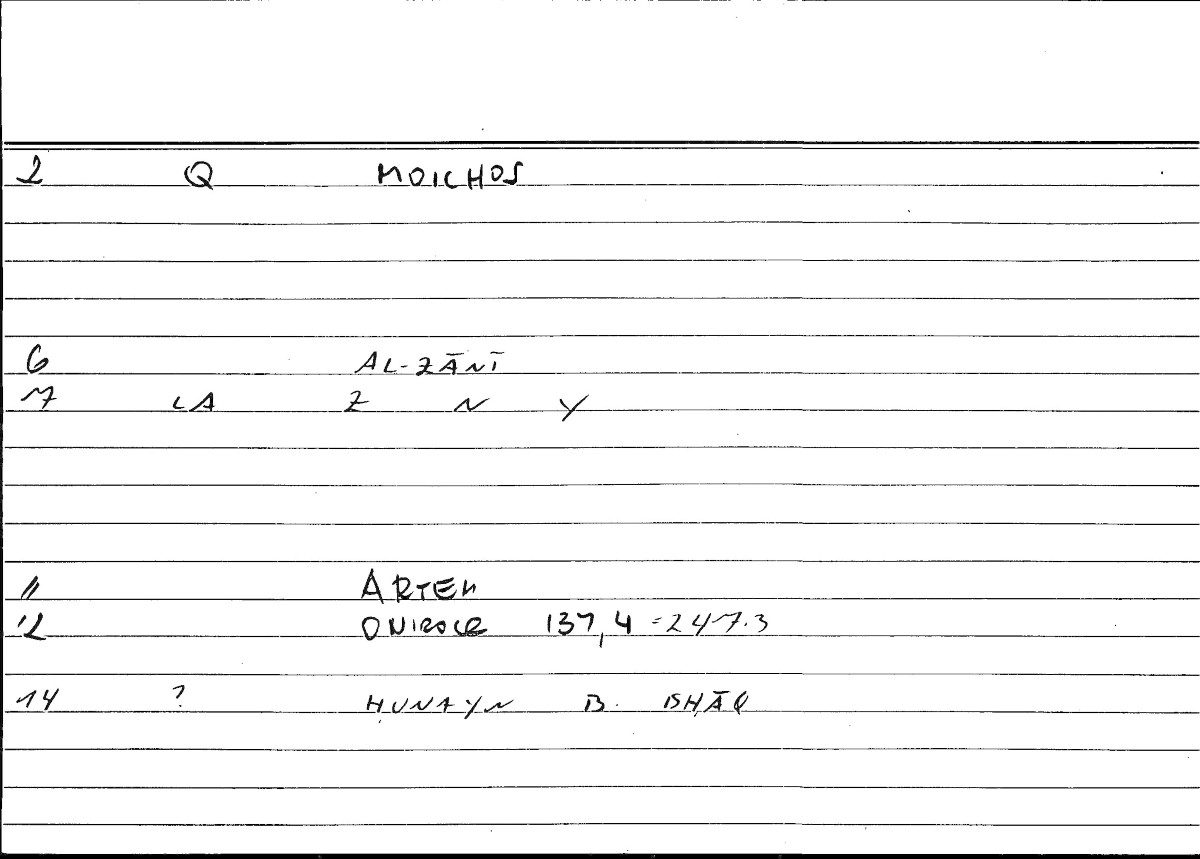 2 Q MOICHOS
6 AL-ZĀNĪ
7 LA Z N Y
11 ARTEM
12 ONIROCR 137,4 =247.3
14 ? ḤUNAYN B. ISḤĀQ